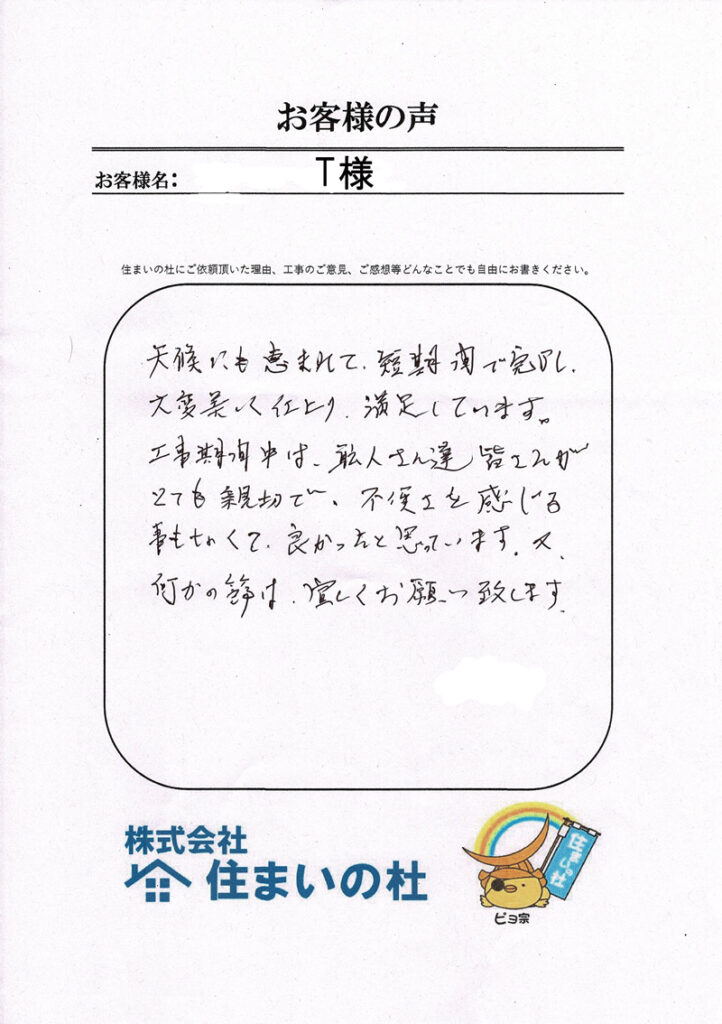 お客様の声
お客様名: T様
住まいの杜にご依頼頂いた理由、工事のご意見、ご感想等どんなことでも自由にお書きください。
天候にも恵まれて、短期間で完了し、
大変美しく仕上り、満足しています。
工事期間中は、職人さん達皆さんが
とても親切で、不便さを感じる
事もなくて、良かったと思っています。又、
何かの節は、宜しくお願い致します。
株式会社
住まいの杜
住まいの杜
ピヨ宗